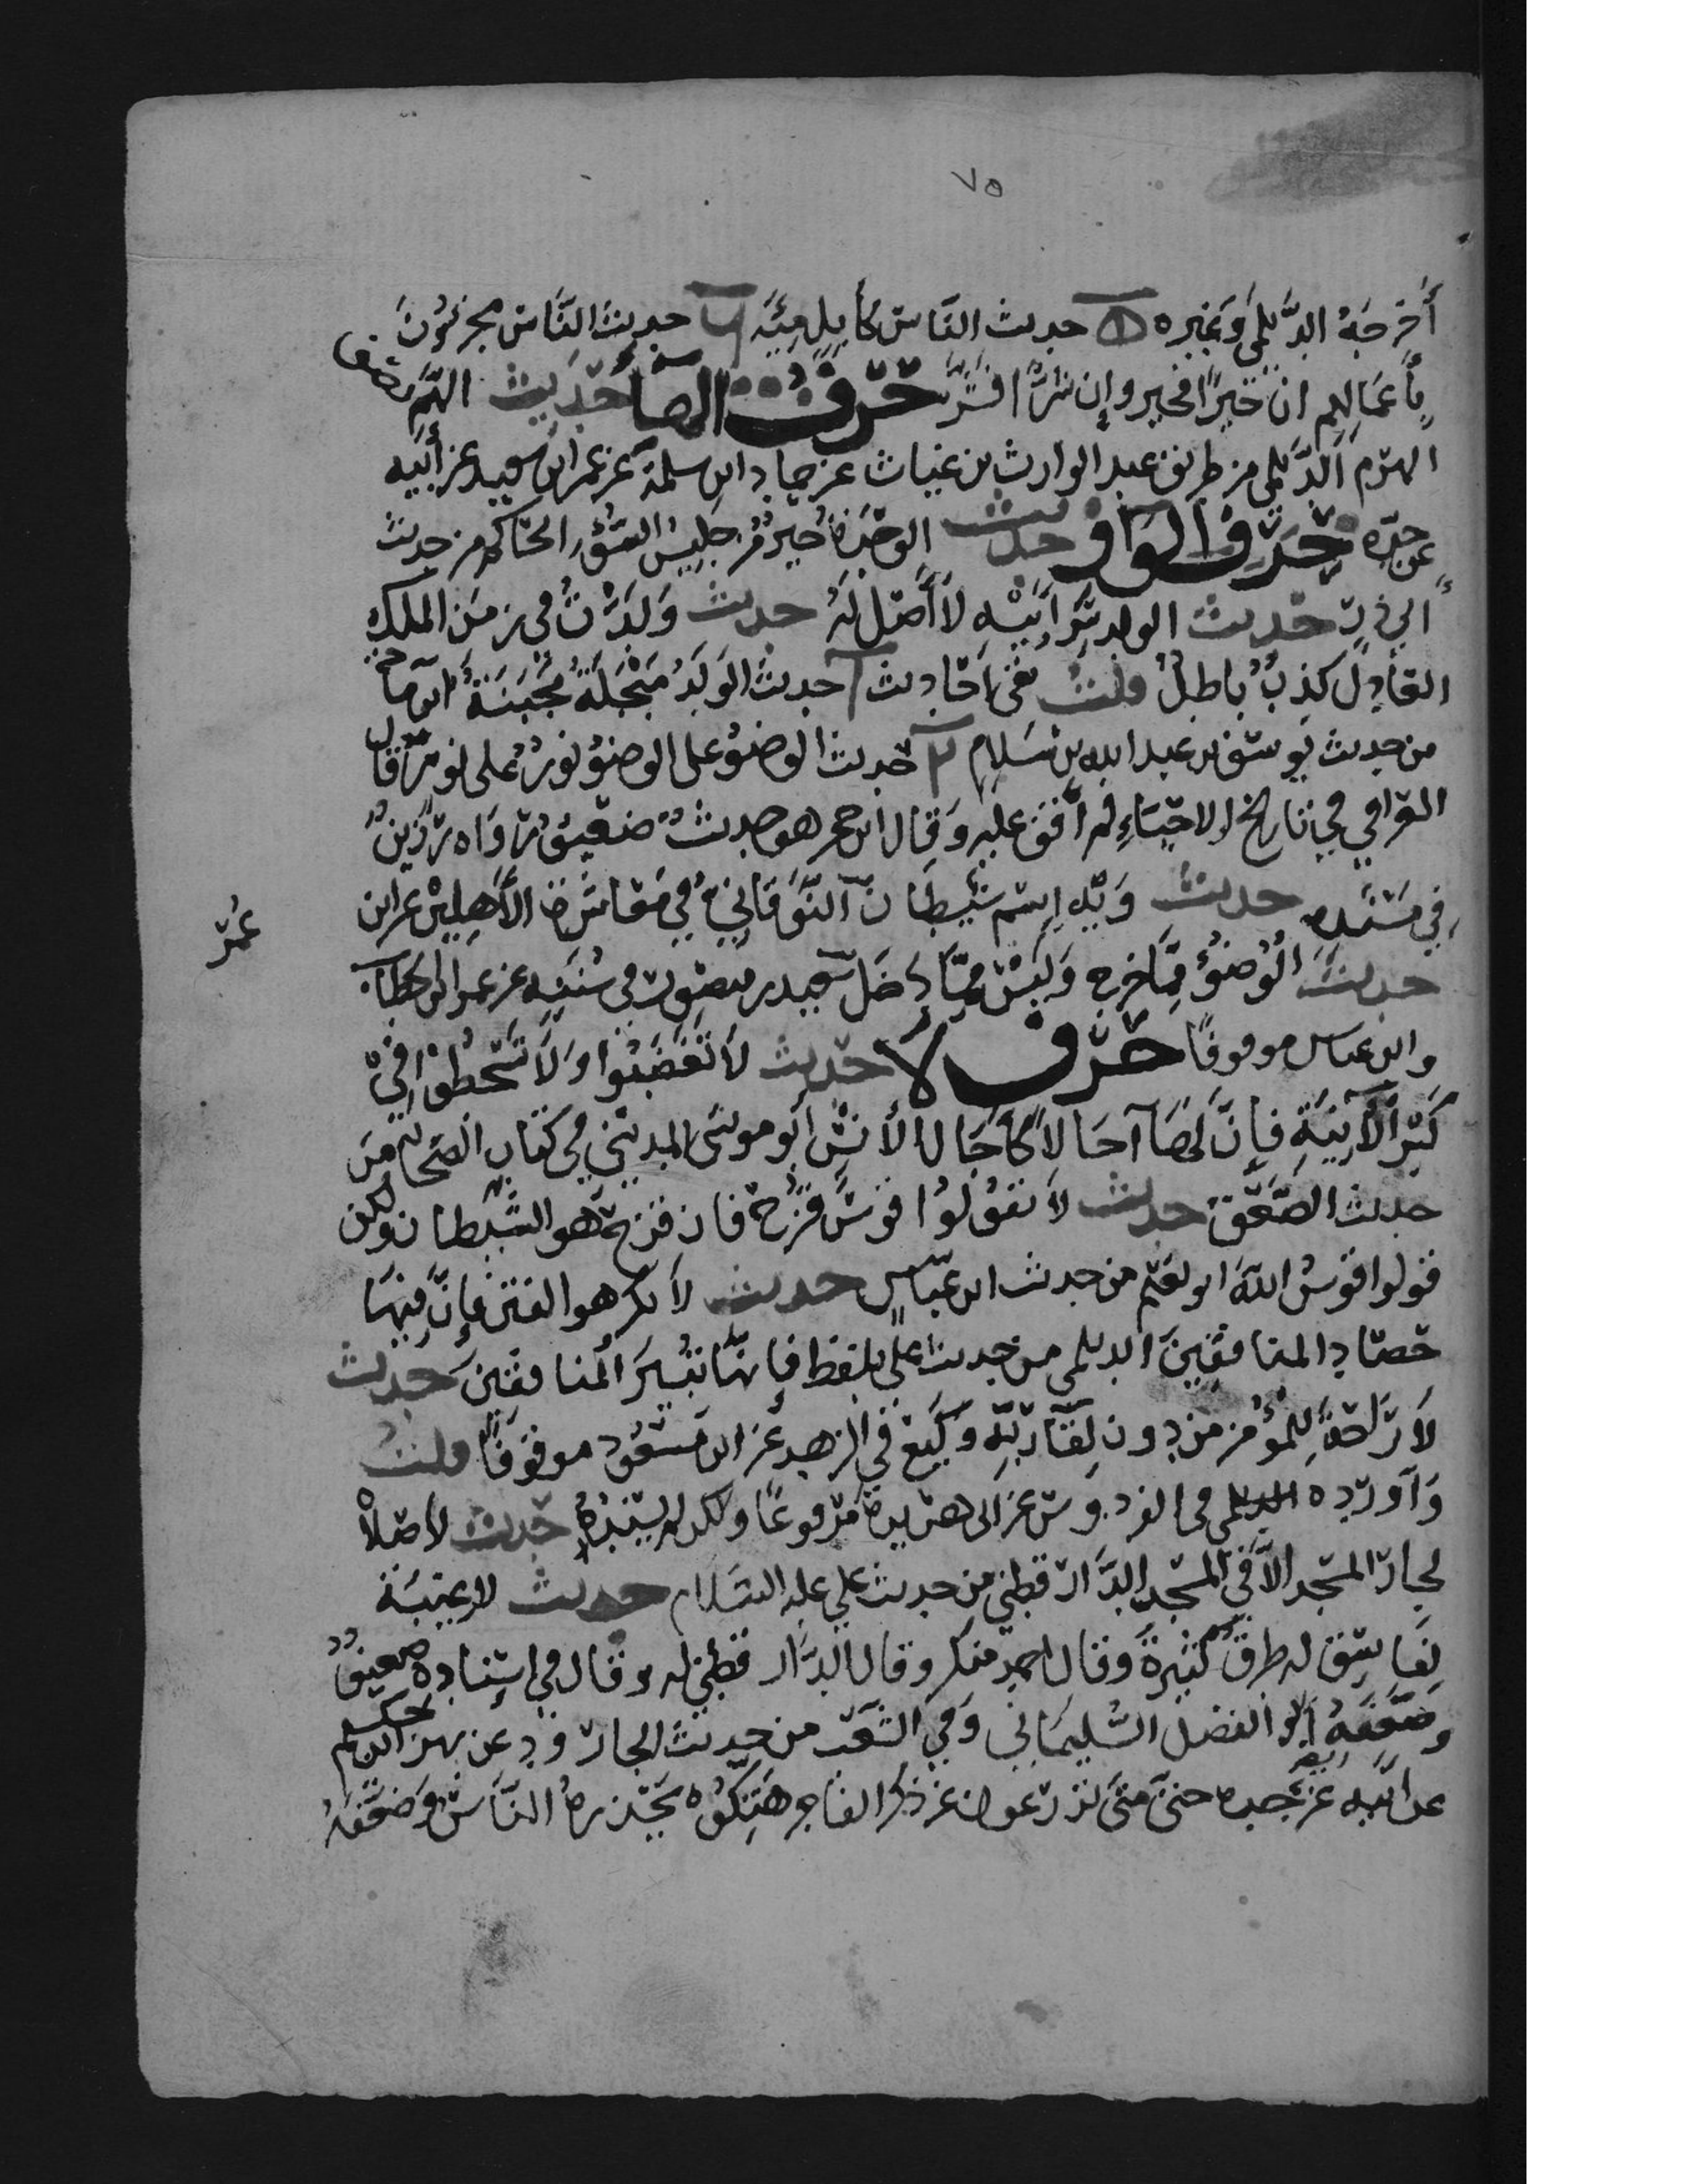 ٧٥
أخرجه الديلمي وغيره ١ حديث الناس كأبل مئة ٢ حديث الناس مجزئون
بأعمالهم ان خيرا فخير وإن شرا فشر حرف الها حديث الهم نصف
الهرم الديلمي من طريق عبد الوارث بن غياث عن حماد ابن سلمة عن عمر ابن سعيد عن أبيه
عن جده حرف الواو حديث الوحدة خير من جليس السوء الحاكم من حديث
ابي ذر حديث الولد سر ابيه لا أصل له حديث ولدت في زمن الملك
العادل كذب باطل قلت بقي احاديث ١ حديث الولد مبخلة مجبنة ابن ماجة
من حديث يوسف بن عبد الله بن سلام ٢ حديث الوضوء على الوضوء نور على نور قال
العراقي في تاريخ الاحياء لم أقف عليه وقال ابن حجر هو حديث ضعيف رواه رزين
في مسنده حديث ويه اسم شيطان النوقاني في معاشرة الأهلين عن ابن
عمر
حديث الوضوء مما خرج وليس مما دخل سعيد بن منصور في سننه عن عمر ابن الخطاب
وابن عباس موقوفا حرف لا حديث لا تغضبوا ولا تسخطوا في
كسر الآنية فإن لها آجالا كآجال الأنس أبو موسى المديني في كتاب الصحابة من
حديث الصعق حديث لا تقولوا قوس قزح فان قزح هو الشيطان ولكن
قولوا قوس الله ابو نعيم من حديث ابن عباس حديث لا تكرهوا الفتن فإن فيها
حصاد المنافقين الديلمي من حديث علي بلفظ فإنها تبير المنافقين حديث
لا راحة للمؤمن من دون لقاء ربه وكيع في الزهد عن ابن مسعود موقوفا قلت
وأورده الديلمي في الفردوس عن ابي هريرة مرفوعا ولكن لم يسنده حديث لا صلاة
لجار المسجد الا في المسجد الدارقطني من حديث علي عليه السلام حديث لا غيبة
لفاسق له طرق كثيرة وقال احمد منكر وقال الدارقطني له وقال في إسناده ضعيف
وضعفه ابو الفضل السليماني وفي الشعب من حديث الجارود عن بهز ابن حكيم
عن ابيه عن جده حتى متى تزرعون عن ذكر الفاجر هتكوه يحذره الناس وضعفه